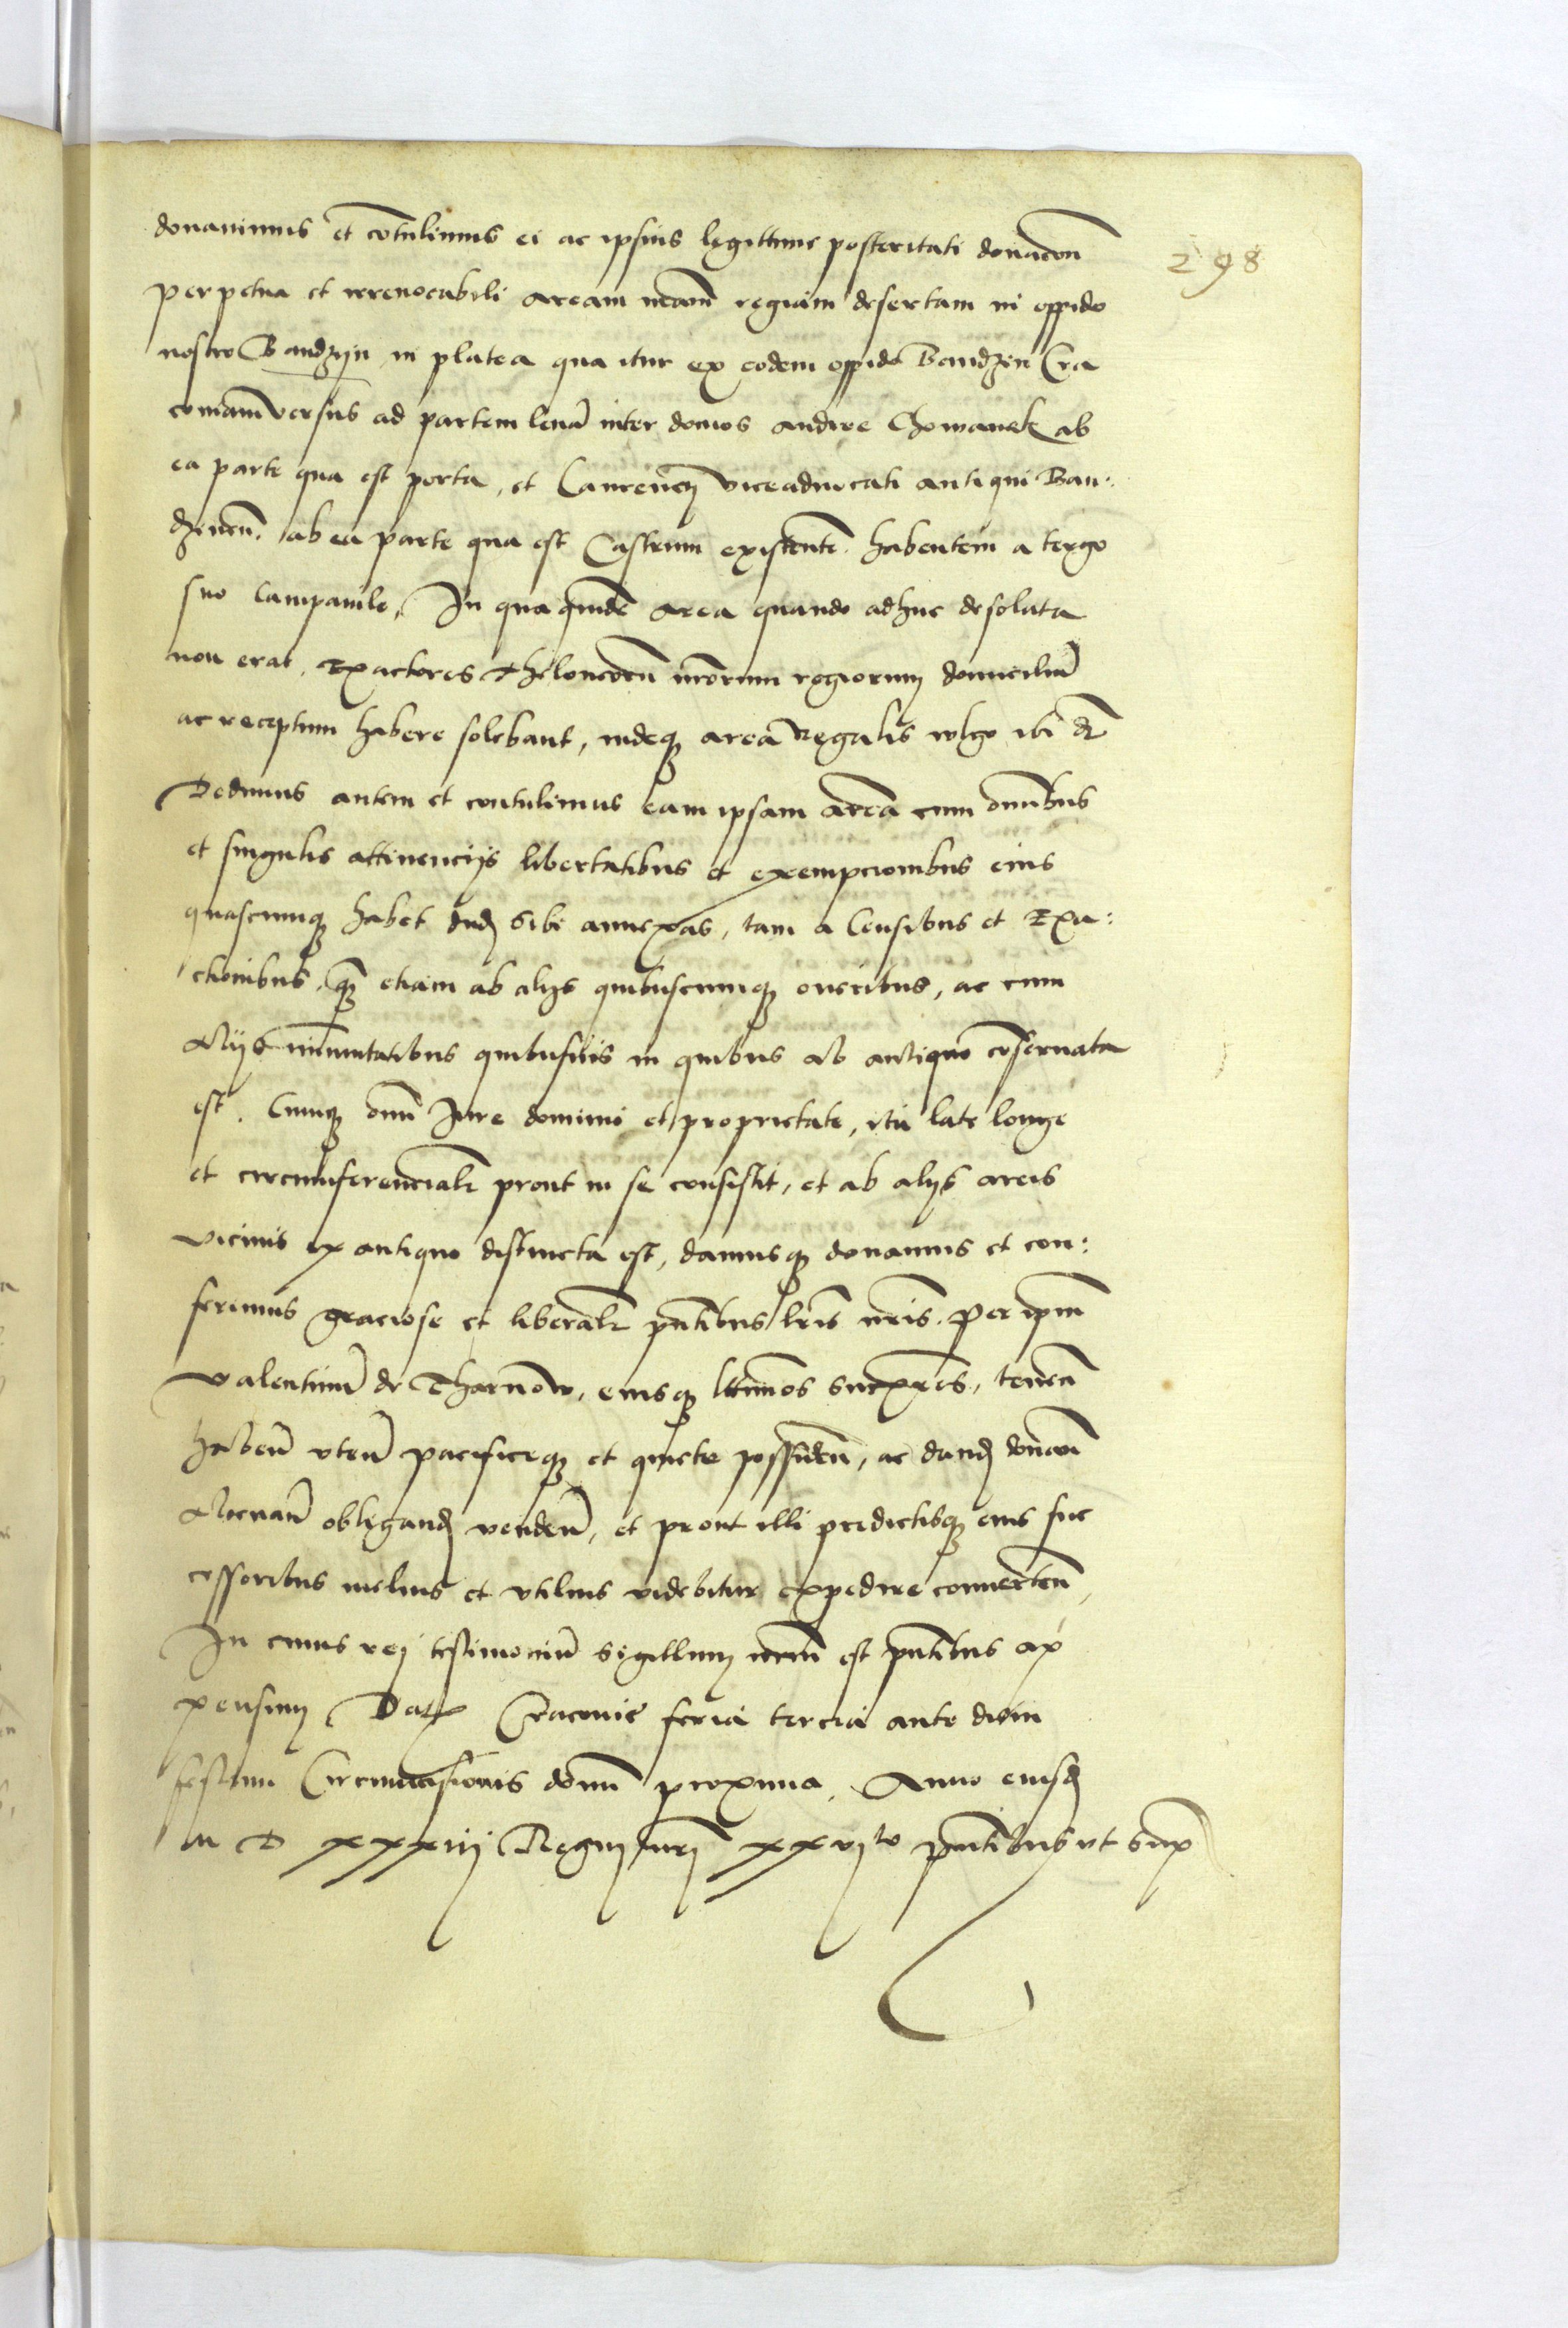 donavimus et cōtulimus ei ac ipsius legittime posteritati donacōn
298
perpetua et irrevocabili aream nr̄am regiam desertam in oppido
nostro Bandzyn in platea qua itur ex eodem oppido Bandzin Cra
coviam versus ad partem levā inter domos andree Chomanek ab
ea parte qua est porta, et Laurencij viceadvocati antiqui Ban:
dzinen̄. ab ea parte qua est Castrum existente. habentem a tergo
suo Campanile, In qua quidē area quando adhuc desolata
non erat, Exactores theloneorū nr̄orum regiorum domiciliū
ac receptum habere solebant, indeq area Regalis wlgo ibi dr̄
Dedimus autem et contulimus eam ipsam areā cum om̄ibus
et singulis attinencijs libertatibus et exempcionibus eius
quascunq habet sibi annexas, tam a Censibus et Exa:
ctionibus, q̄ etiam ab alijs quibuscumq oneribus, ac cum
Alijs im̄unitatibus quibusvis in quibus ab antiquo cōservata
est. Cumq om̄i Jure dominii et proprietate, ita late longe
et circumferencialr̄ prout in se consistit, et ab alijs areis
vicinis ex antiquo distincta est, damusq donamus et con:
ferimus graciose et liberalr̄ pn̄tibus lr̄is nr̄is. Per ipm̄
valentinū de Tharnow, eiusq lttimos succr̄es, tenen̄
haben̄ uten̄ pacificeq et quiete possiden̄, ac dand donan̄
Alienan̄ obligand venden̄, et prout illi predictisq eius suc
cessoribus melius et utilius videbitur expedire converten̄,
In cuius rej testimoniū sigillum nr̄um est pn̄tibus ap
pensum Dat Cracovie feria tercia ante diem
festum Circumcisionis domī proxima, Anno eiusd
M D xxxiij Regnj nr̄j xxvijto pn̄tibus ut sup